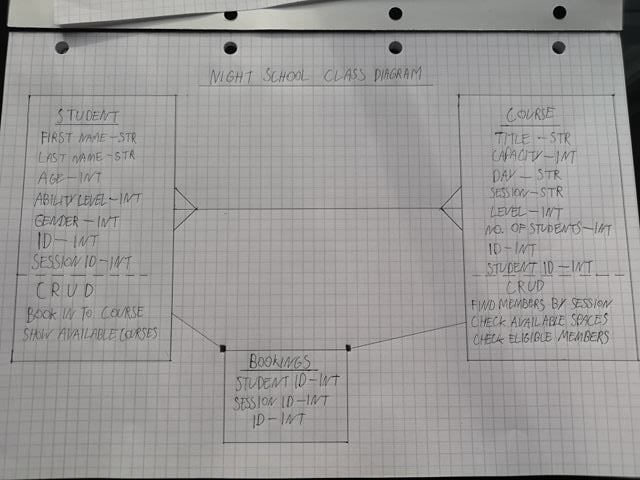 NIGHT SCHOOL CLASS DIAGRAM
STUDENT
FIRST NAME-STR
LAST NAME-STR
AGE-INT
ABILITY LEVEL-INT
GENDER-INT
ID-INT
SESSION ID-INT
CRUD
BOOK IN TO COURSE
SHOW AVAILABLE COURSES
COURSE
TITLE-STR
CAPACITY-INT
DAY-STR
SESSION-STR
LEVEL-INT
NO. OF STUDENTS-INT
ID-INT
STUDENT ID-INT
CRUD
FIND MEMBERS BY SESSION
CHECK AVAILABLE SPACES
CHECK ELIGIBLE MEMBERS
BOOKINGS
STUDENT ID-INT
SESSION ID-INT
ID-INT